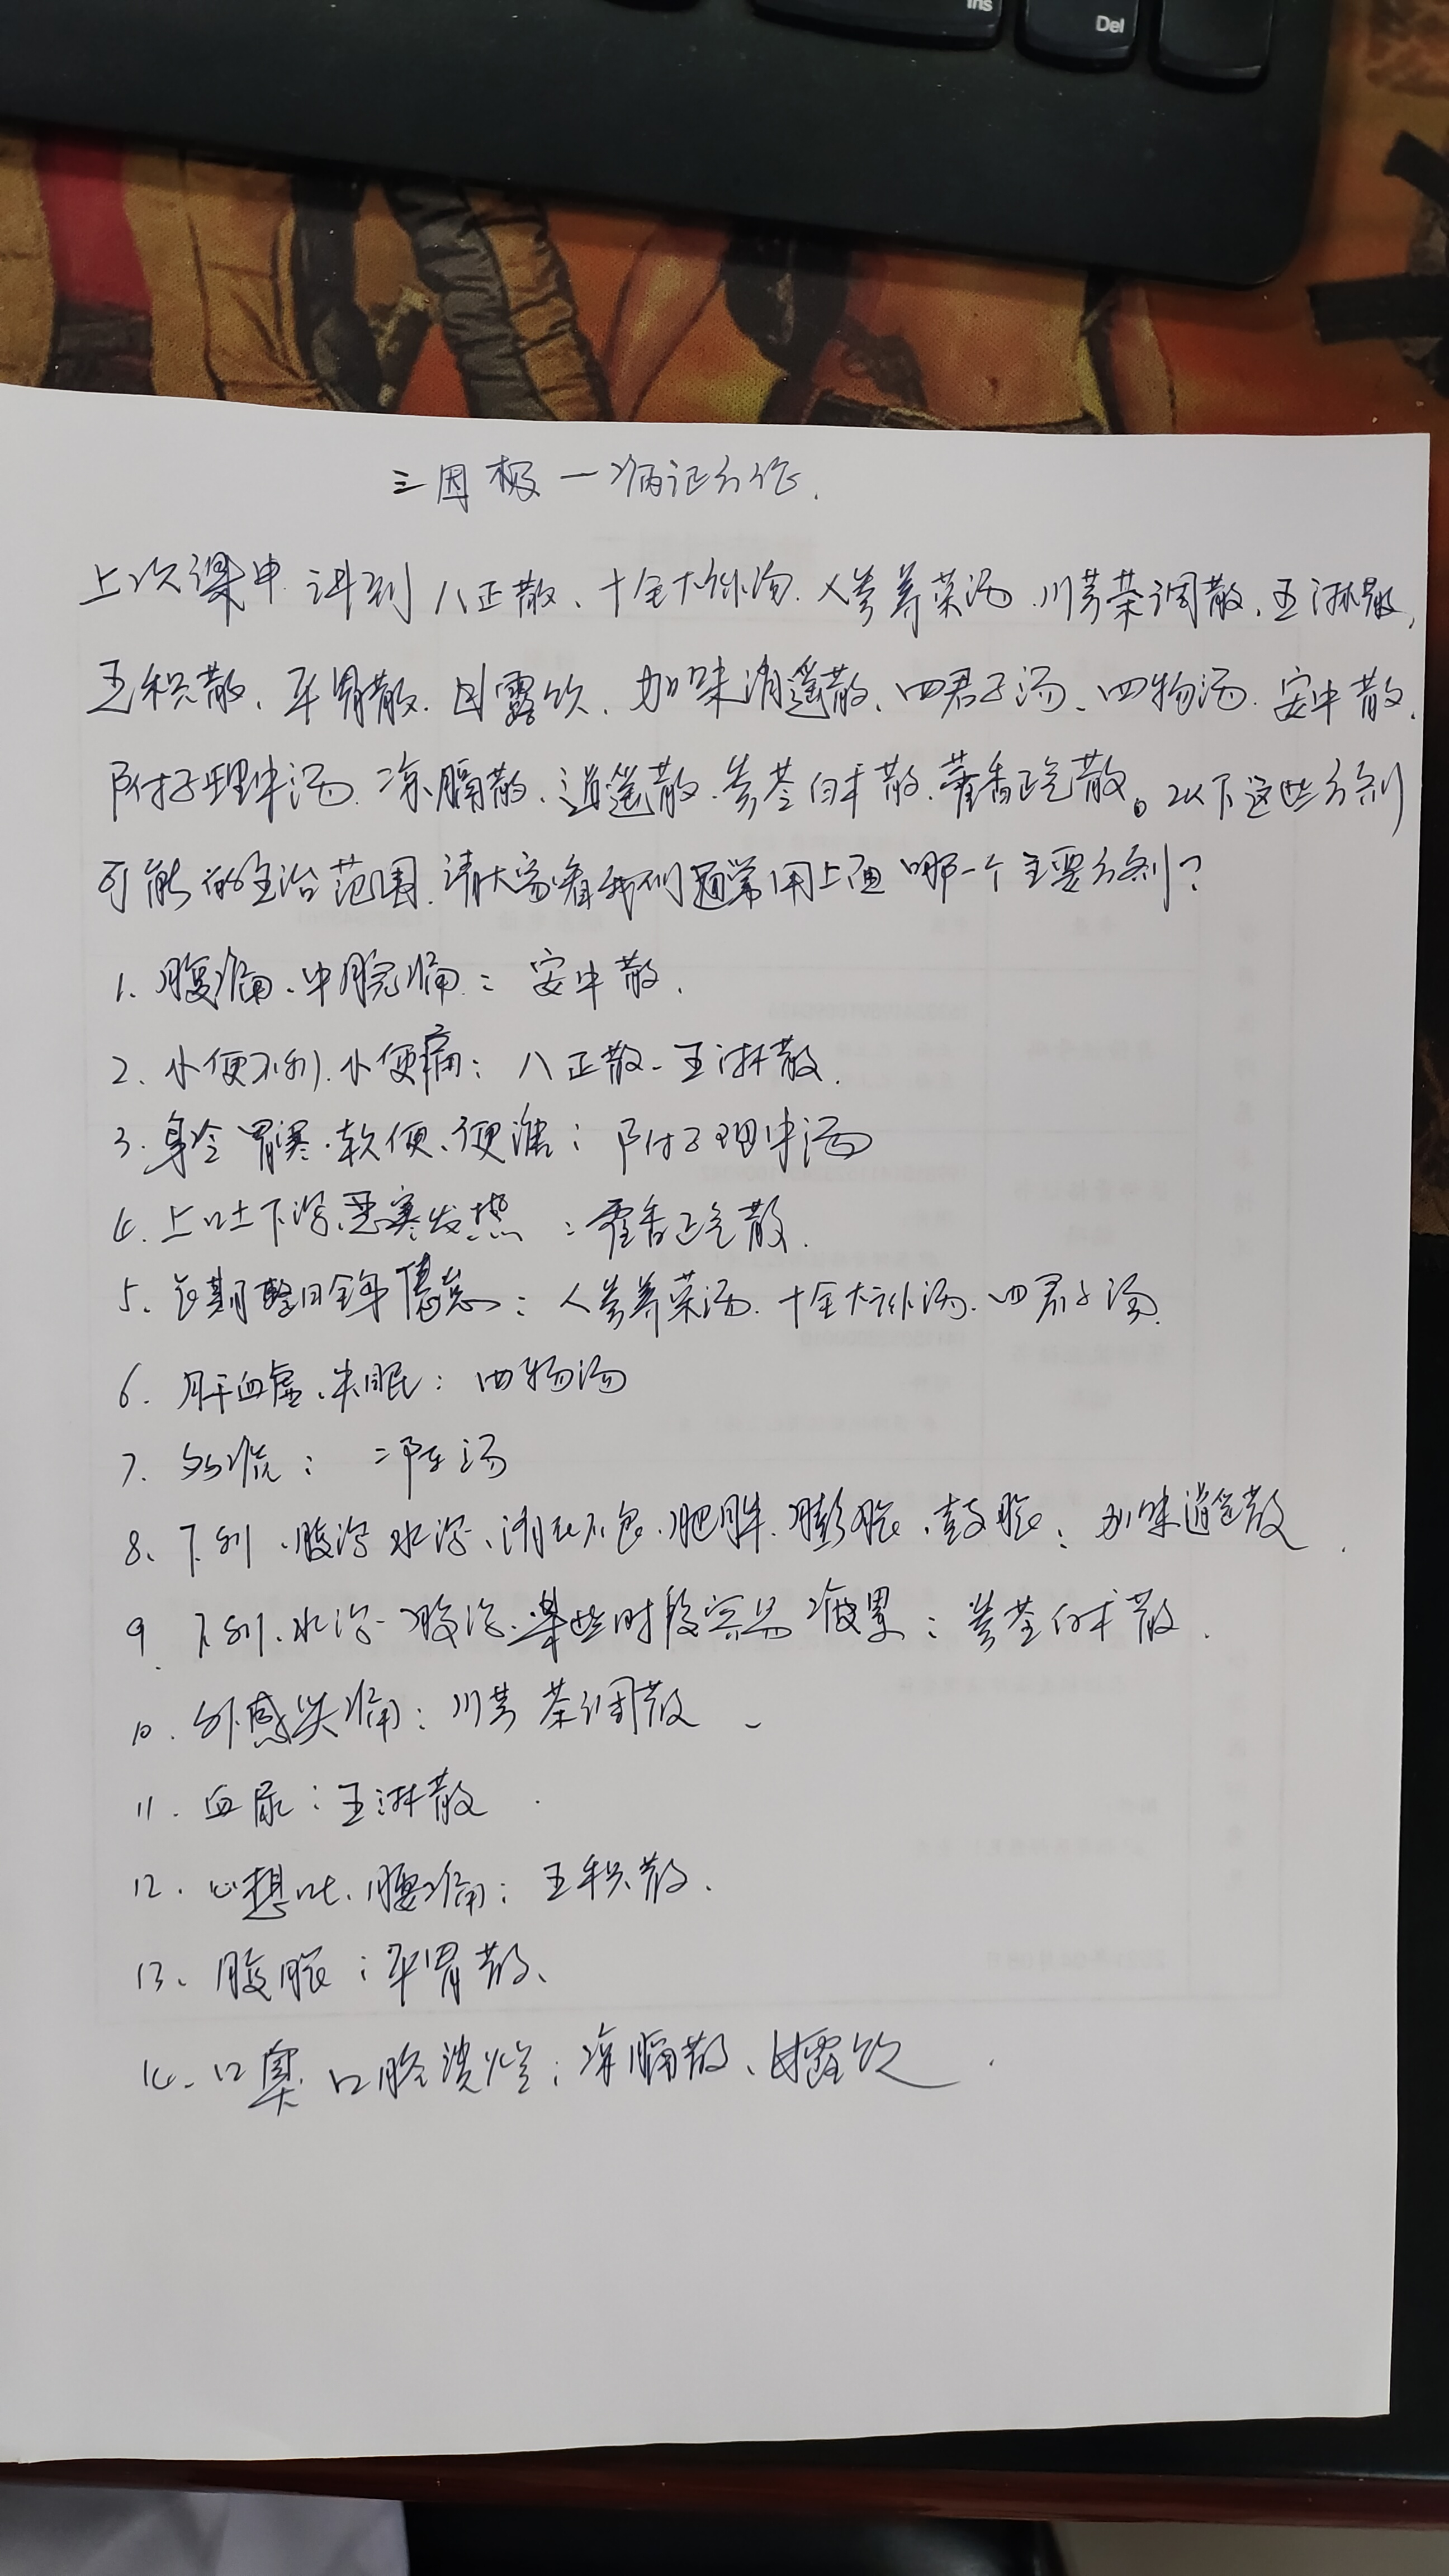 Ins
Del
三因极一病证方论.
上次课中讲到八正散、十全大补汤.人参养荣汤.川芎茶调散.五淋散,
五积散、平胃散.甘露饮、加味消遥散、四君子汤、四物汤.安中散.
附子理中汤.凉膈散、逍遥散.参苓白术散.藿香正气散。以下这些方剂
可能的主治范围.请大家看我们通常用上面哪一个主要方剂?
1、腹痛、中脘痛:安中散.
2、小便不利.小便痛:八正散、五淋散.
3.身冷胃寒.软便、便溏:附子理中汤
4.上吐下泻.恶寒发热:藿香正气散.
5、长期整日全身倦怠:人参养荣汤.十全大补汤.四君子汤.
6.肝血虚、失眠:四物汤
7.多痰:二陈汤
8、下利、腹泻水泻、消化不良.肥胖.膨胀、鼓胀:加味逍遥散.
9.下利.水泻、腹泻.某些时段容易疲累:参苓白术散.
10.外感头痛:川芎茶调散
11.血尿:五淋散.
12.心想吐、腰痛:五积散.
13、腹胀:平胃散、
14.口臭口腔溃烂:凉膈散、甘露饮.